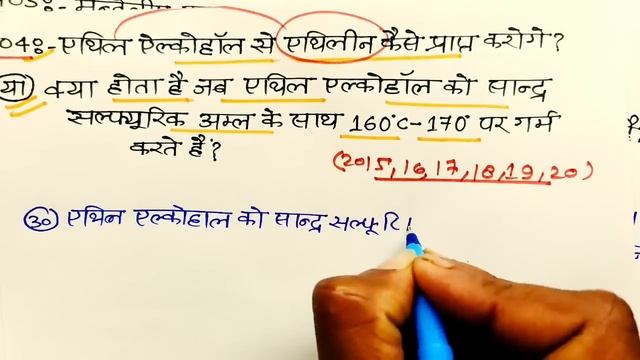 048- एथिल ऐल्कोहॉल से एथिलीन कैसे प्राप्त करोगे?
(या) क्या होता है जब एथिल एल्कोहॉल को सान्द्र
सल्फ्यूरिक अम्ल के साथ 160°C-170° पर गर्म
करते हैं?
(2015,16,17,18,19,20)
(उ०) एथिन एल्कोहाल को सान्द्र सल्फूरि